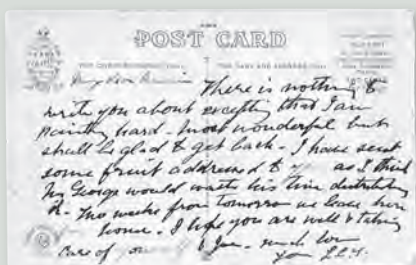 POST CARD
FOR CORRESPONDENCE
THE NAME AND ADDRESS
My dear
There is nothing to
write you about excepting that I am
painting hard - most wonderful but
shall be glad to get back - I have sent
some fruit addressed to you as I think
George would waste his time distributing
it - Two weeks from tomorrow we leave here
home - I hope you are well & taking
care of much love